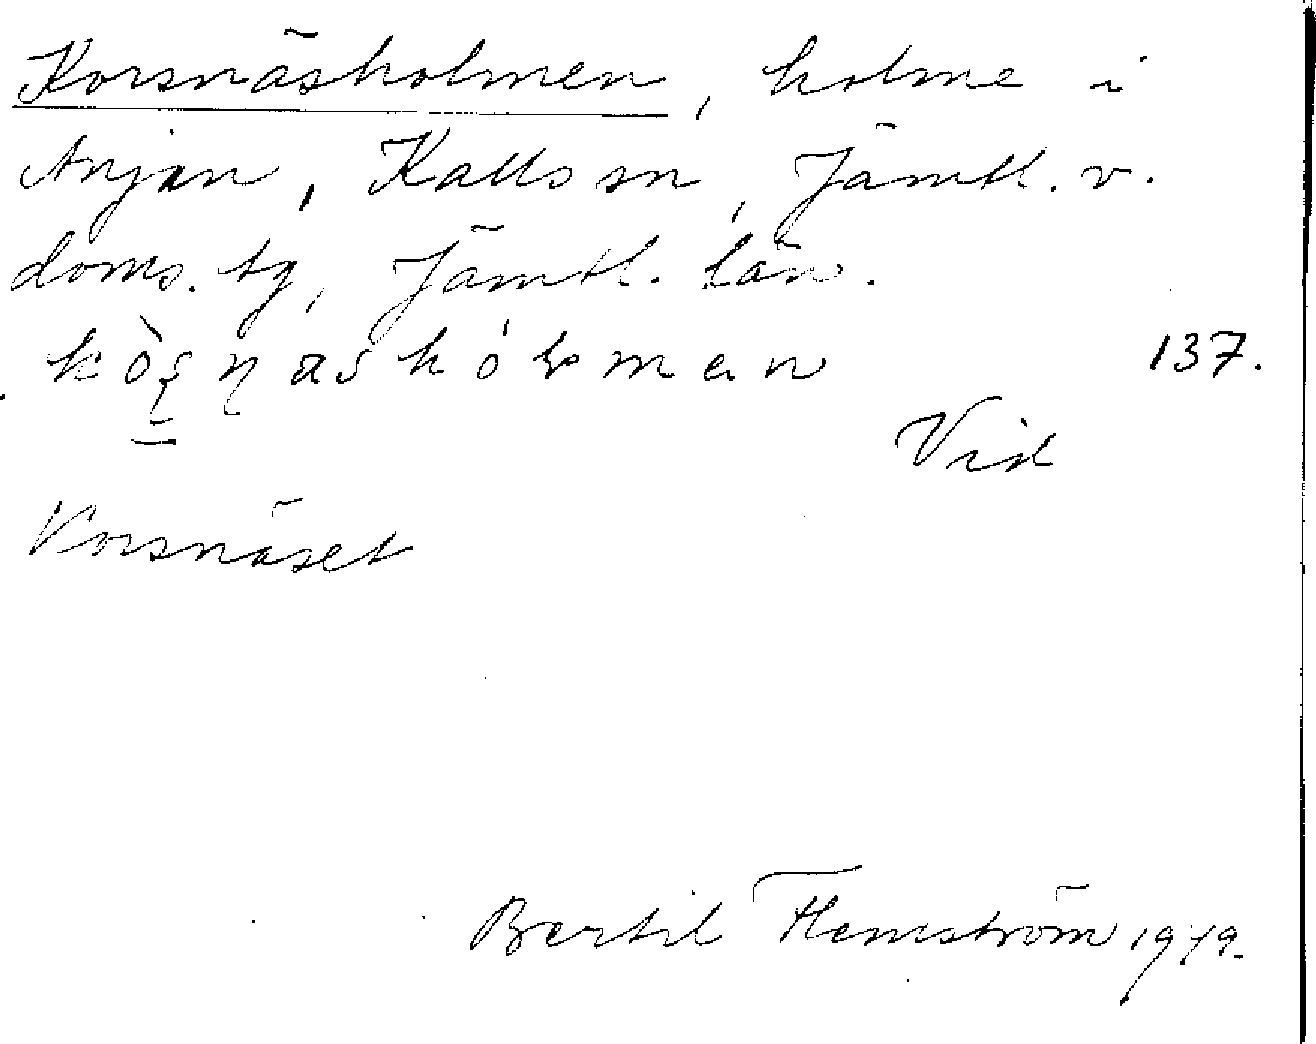 Korsnäsholmen, holme i
Anjan, Kalls sn, Jämtl. v.
doms. tg, Jämtl. län.
137.
Vid
Korsnäset
Bertil Flemström 1949.